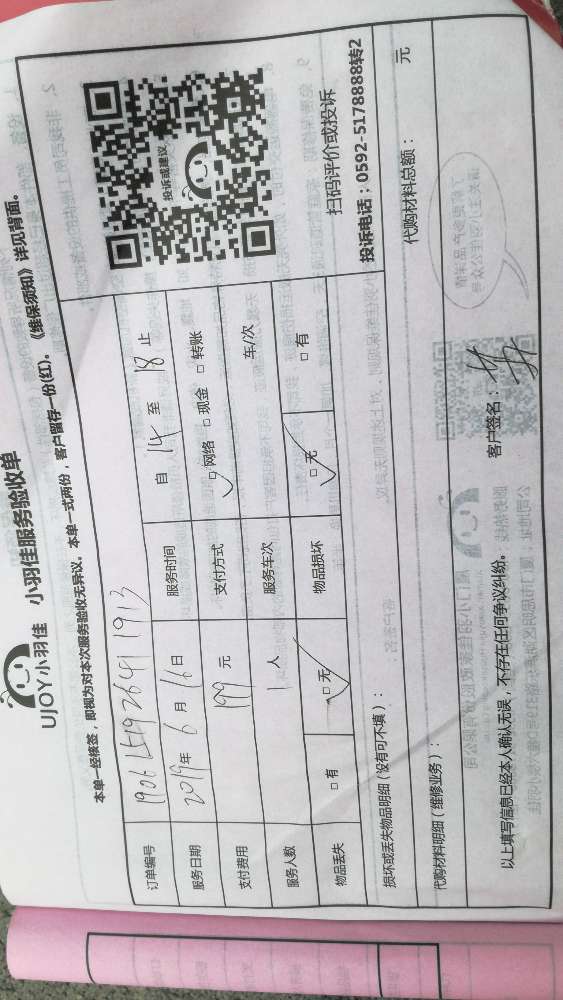 UJOY小羽佳 小羽佳服务验收单
本单一经核签，即视为对本次服务验收无异议。本单一式两份，客户留存一份(红)。《维保须知》详见背面。
订单编号
服务日期 2019年 6月 16日 服务时间 自 14 至 18 止
支付费用 199 元 支付方式 □网络 □现金 □转账
服务人数 1 人 服务车次 车/次
物品丢失 □有 □无 物品损坏 □无 □有
投诉或建议
扫码评价或投诉
投诉电话：0592-5178888转2
损坏或丢失物品明细（没有可不填）：
代购材料明细（维修业务）： 代购材料总额： 元
以上填写信息已经本人确认无误，不存在任何争议纠纷。 客户签名：